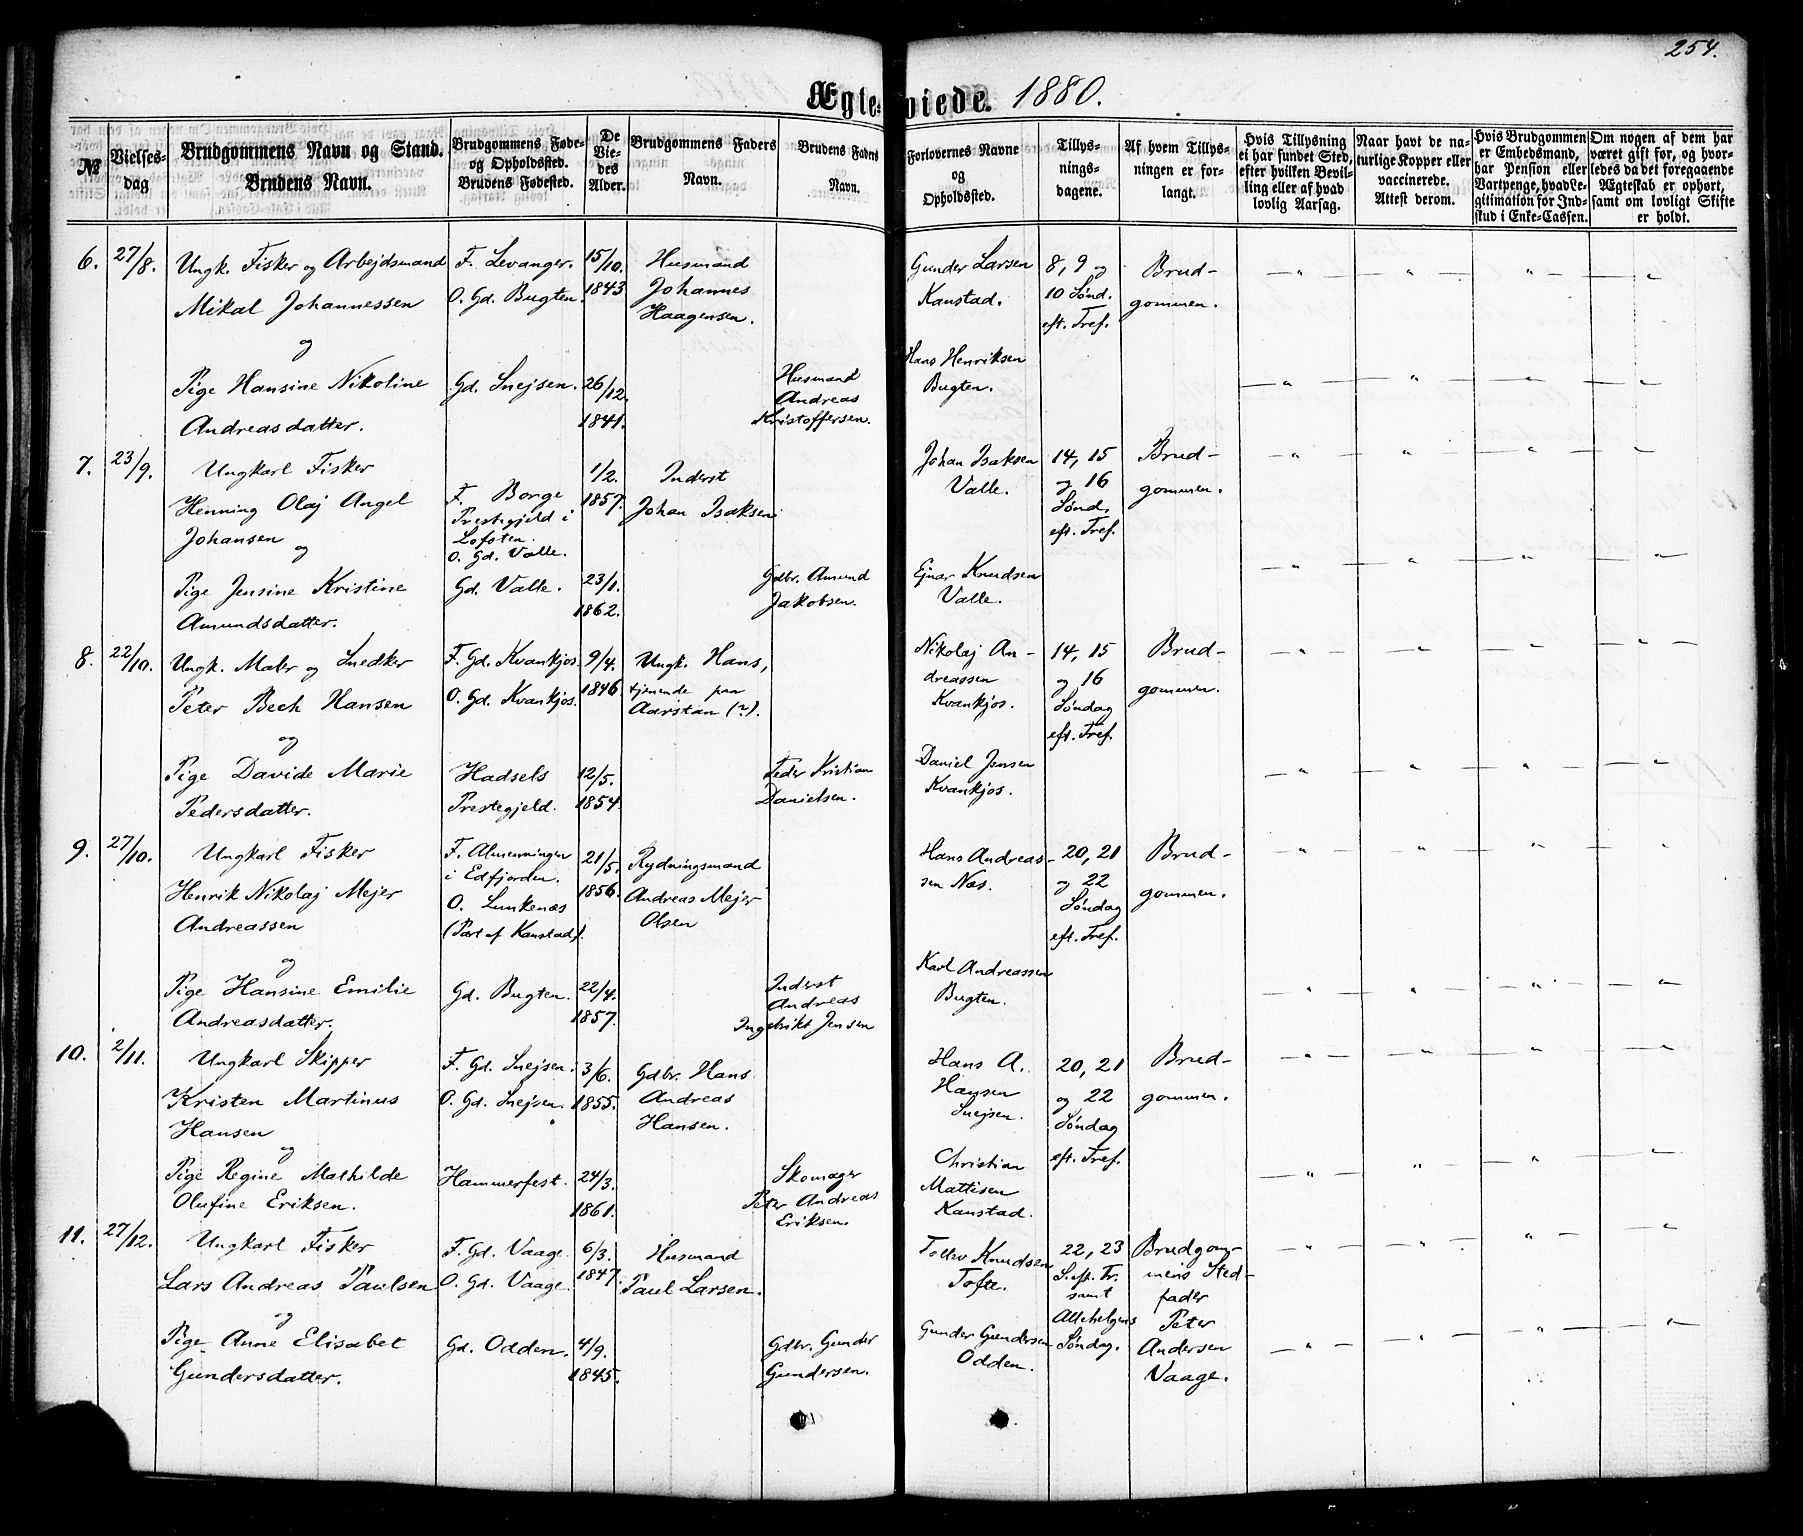 254.
Ægteviede. 1880.
№
Vielses-
dag
Brudgommens Navn og Stand.
Brudens Navn.
Brudgommens Føde-
og Opholdssted.
Brudens Fødested.
De
Vie-
des
Alder.
Brudgommens Faders
Navn.
Brudens Faders
Navn.
Forlovernes Navne
og
Opholdssted.
Tillys-
nings-
dagene.
Af hvem Tillys-
ningen er for-
langt.
Hvis Tillysning
ei har fundet Sted,
efter hvilken Bevil-
ling eller af hvad
lovlig Aarsag.
Naar havt de na-
turlige Kopper eller
vaccinerede.
Attest derom.
Hvis Brudgommen
er Embedsmand,
har Pension eller
Vartpenge, hvad Le-
gitimation for Ind-
skud i Enke-Cassen.
Om nogen af dem har
været gift før, og hvor-
ledes da det foregaaende
Ægteskab er ophørt,
samt om lovligt Skifte
er holdt.
6. 27/8. Ungk. Fisker og Arbejdsmand
Mikal Johannessen
og
Pige Hansine Nikoline
Andreasdatter.
F. Levanger.
O. Gd. Bugten.
Gd. Snejsen.
15/10.
1843
26/12.
1841.
Husmand
Johannes
Haagensen.
Husmand
Andreas
Kristoffersen.
Gunder Larsen
Kanstad.
Hans Henriksen
Bugten.
8, 9 og
10 Sønd.
eft. Tref.
Brud-
gommen.
7. 23/9. Ungkarl Fisker
Henning Olaj Angel
Johansen
og
Pige Jensine Kristine
Amundsdatter.
F. Borge
Prestegjeld i
Lofoten.
O. Gd. Valle.
Gd. Valle.
1/2.
1857.
23/1.
1862.
Inderst
Johan Isaksen
Gdbr. Amund
Jakobsen.
Johan Isaksen
Valle.
Ejnar Knudsen
Valle.
14, 15
og 16
Sønd.
eft. Tref.
Brud-
gommen.
8. 22/10. Ungk. Maler og Snedker
Peter Bech Hansen
og
Pige Davide Marie
Pedersdatter.
F. Gd. Kvankjos.
O. Gd. Kvankjos.
Hadsels
Prestegjeld.
9/4.
1846
12/5.
1854.
Ungk. Hans,
tjenende paa
Aarstan (?).
Peder Kristian
Danielsen.
Nikolaj An-
dreassen
Kvankjos.
Daniel Jensen
Kvankjos.
14, 15
og 16
Søndag
eft. Tref.
Brud-
gommen.
9. 27/10. Ungkarl Fisker
Henrik Nikolaj Mejer
Andreassen
og
Pige Hansine Emilie
Andreasdatter.
F. Almenningen
i Edfjorden.
O. Lunkenæs
(Part af Kanstad).
Gd. Bugten.
21/5.
1856.
22/4.
1857.
Rydningsmand
Andreas Mejer
Olsen
Inderst
Andreas
Ingebrikt Jensen
Hans Andreas-
sen Næs.
Karl Andreassen
Bugten.
20, 21
og 22
Søndag
eft. Tref.
Brud-
gommen.
10. 2/11. Ungkarl Skipper
Kristen Martinus
Hansen
og
Pige Regine Mathilde
Olufine Eriksen.
F. Gd. Snejsen.
O. Gd. Snejsen.
Hammerfest.
3/6.
1855.
24/3.
1861.
Gdbr. Hans
Andreas
Hansen.
Skomager
Peter Andreas
Eriksen.
Hans A.
Hansen
Snejsen.
Christian
Mattisen
Kanstad.
20, 21
og 22
Søndag
eft. Tref.
Brud-
gommen.
11. 27/12. Ungkarl Fisker
Lars Andreas Paulsen
og
Pige Anne Elisabet
Gundersdatter.
F. Gd. Vaage
O. Gd. Vaage.
Gd. Odden.
6/3.
1847.
4/9.
1845.
Husmand
Paul Larsen.
Gdbr. Gunder
Gundersen.
Tollev Knudsen
Tofte.
Gunder Gundersen
Odden.
22, 23
S. eft. Tr.
samt
Allehelgens
Søndag.
Brudgom-
mens Sted-
fader
Peter
Andersen
Vaage.